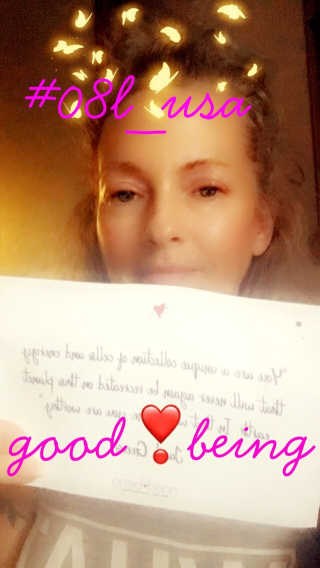 #08l_usa
"You are a unique collection of cells and energy
that will never again be recreated on this planet
earth. In that you are worthy"
good❣️being